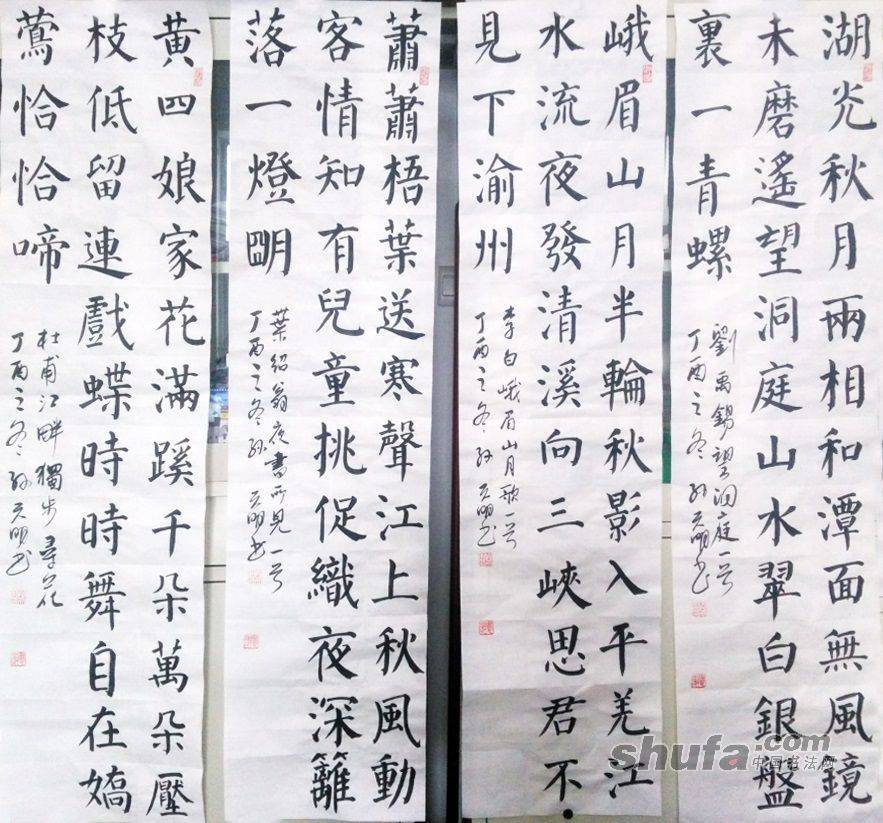 湖光秋月兩相和潭面無風鏡
未磨遙望洞庭山水翠白銀盤
裏一青螺
劉禹錫望洞庭一首
丁酉之冬孙
峨眉山月半輪秋影入平羌江
水流夜發清溪向三峽思君不
見下渝州
李白峨眉山月歌一首
丁酉之冬孙
蕭蕭梧葉送寒聲江上秋風動
客情知有兒童挑促織夜深籬
落一燈明
葉紹翁夜書所見一首
丁酉之冬孙
黃四娘家花滿蹊千朵萬朵壓
枝低留連戲蝶時時舞自在嬌
鶯恰恰啼
杜甫江畔獨步尋花
丁酉之冬孙
shufa.com
中国书法网